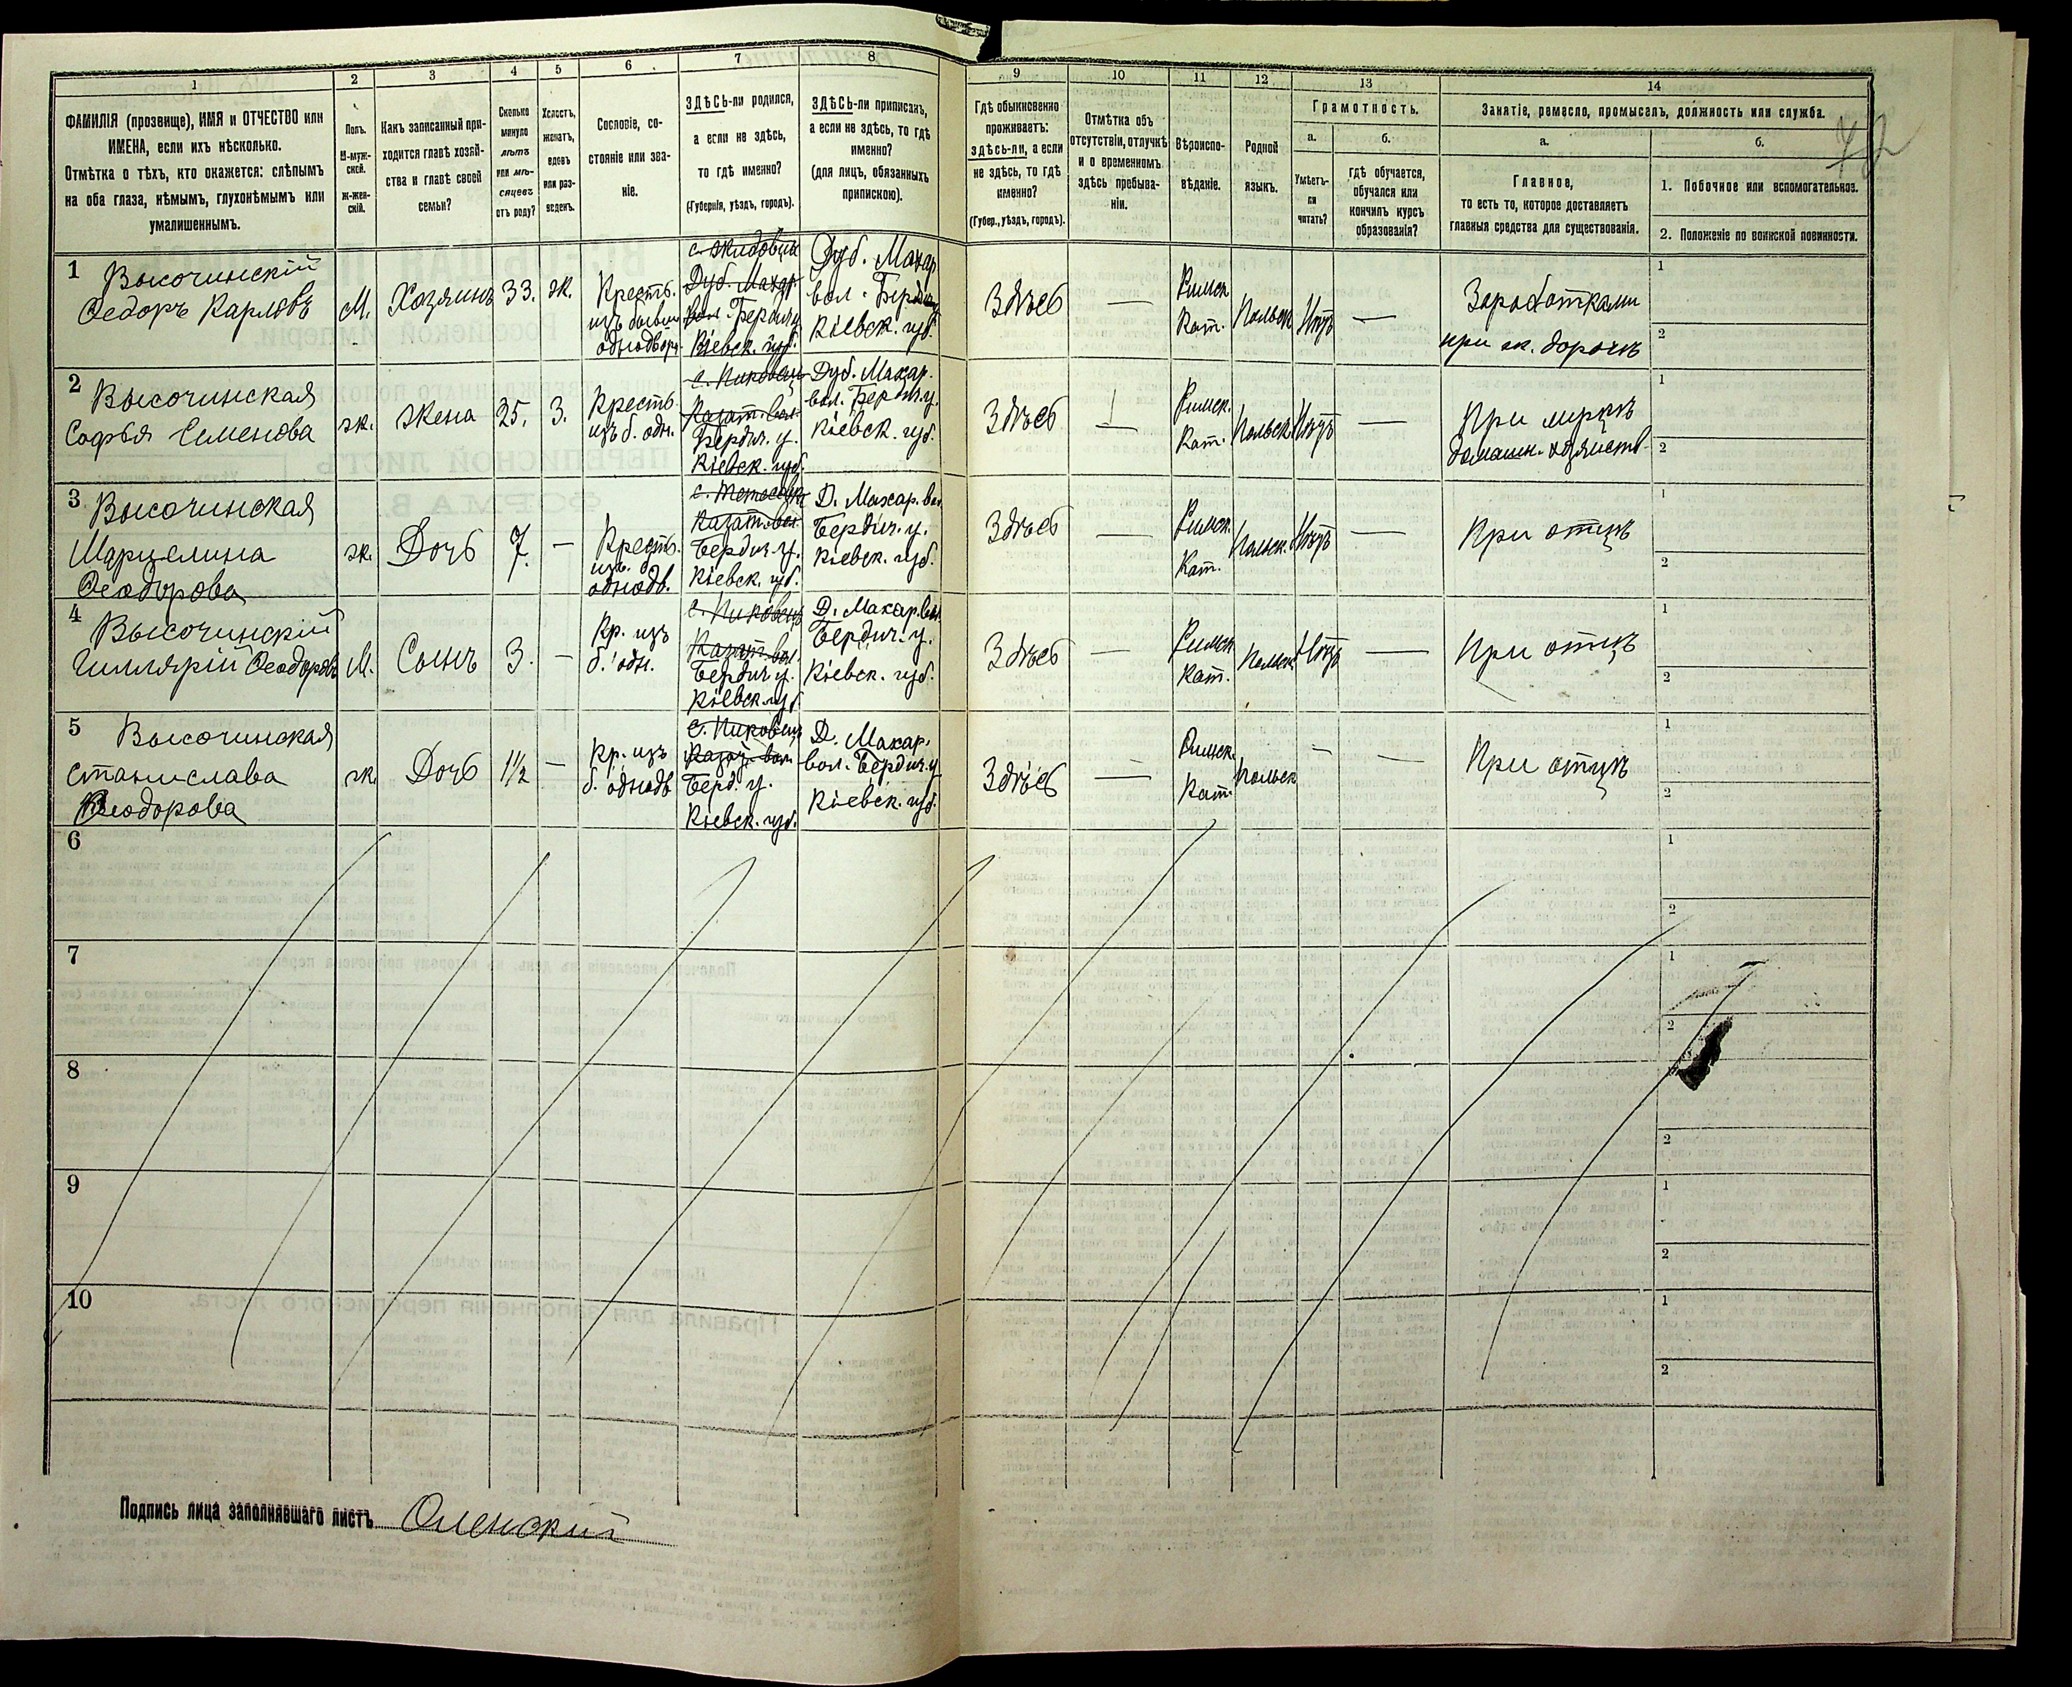 1
2
3
4
5
6
7
8
9
10
11
12
13
14
ФАМИЛІЯ (прозвище), ИМЯ и ОТЧЕСТВО или
ИМЕНА, если ихъ нѣсколько.
Отмѣтка о тѣхъ, кто окажется: слѣпымъ
на оба глаза, нѣмымъ, глухонѣмымъ или
умалишеннымъ.
Полъ.
М-муж-
ской.
Ж-жен-
скій.
Какъ записанный при-
ходится главѣ хозяй-
ства и главѣ своей
семьи?
Сколько
минуло
лѣтъ
или мѣ-
сяцевъ
отъ роду?
Холостъ,
женатъ,
вдовъ
или раз-
веденъ.
Сословіе, со-
стояніе или зва-
ніе.
ЗДѢСЬ-ли родился,
а если не здѣсь,
то гдѣ именно?
(Губернія, уѣздъ, городъ).
ЗДѢСЬ-ли приписанъ,
а если не здѣсь, то гдѣ
именно?
(для лицъ, обязанныхъ
припискою).
Гдѣ обыкновенно
проживаетъ:
здѣсь-ли, а если
не здѣсь, то гдѣ
именно?
(Губер., уѣздъ, городъ).
Отмѣтка объ
отсутствіи, отлучкѣ
и о временномъ
здѣсь пребыва-
ніи.
Вѣроиспо-
вѣданіе.
Родной
языкъ.
Грамотность.
а.
б.
Умѣетъ-
ли
читать?
гдѣ обучается,
обучался или
кончилъ курсъ
образованія?
Занятіе, ремесло, промыселъ, должность или служба.
а.
б.
Главное,
то есть то, которое доставляетъ
главныя средства для существованія.
1. Побочное или вспомогательное.
2. Положеніе по воинской повинности.
1
Высочинскій
Ѳедоръ Карловъ
М.
Хозяинъ
33.
ж.
Крестъ.
изъ бывш.
однодворц.
Дуб. Махар.
вол. Бердич. у.
Кіевск. губ.
Дуб. Махар
вол. Бердич у
Кіевск. губ.
Здѣсь
—
Римск
Кат.
Польск
Нѣтъ
—
Заработками
при ж. дорогѣ
1
2
2
Высочинская
Софья Семенова
ж.
Жена
25.
З.
Крестъ.
изъ б. одн.
с. Пиковецъ
Казат. вол.
Бердич. у.
Кіевск. губ.
Дуб. Махар.
вол. Бердич. у.
Кіевск. губ.
Здѣсь
—
Римск.
Кат.
Польск.
Нѣтъ
—
При мужѣ
домашн. хозяйств
1
2
3
Высочинская
Марцелина
Ѳеодорова
ж.
Дочь
7.
—
Крестъ.
изъ б.
однодв.
Казат. вол.
Бердич. у.
Кіевск. губ.
Д. Махар. вол.
Бердич. у.
Кіевск. губ.
Здѣсь
—
Римск.
Кат.
Польск.
Нѣтъ
—
При отцѣ
1
2
4
Высочинскій
Гиллярій Ѳеодоровъ
М.
Сынъ
3.
—
Кр. изъ
б. одн.
с. Пиковецъ
Казат. вол.
Бердич у.
Кіевск. губ
Д. Махар. вол.
Бердич. у.
Кіевск. губ.
Здѣсь
—
Римск
Кат.
Польск.
Нѣтъ
—
При отцѣ
1
2
5
Высочинская
Станислава
Ѳеодорова
ж
Дочь
1½
—
Кр. изъ
б. однодв
с. Пиковецъ
Казат. вол.
Берд. у.
Кіевск. губ.
Д. Махар.
вол. Бердич. у
Кіевск. губ.
Здѣсь
—
Римск.
Кат.
Польск
—
—
При отцѣ
1
2
6
1
2
7
1
2
8
2
9
1
2
10
1
2
Подпись лица заполнявшаго листъ Оленскій